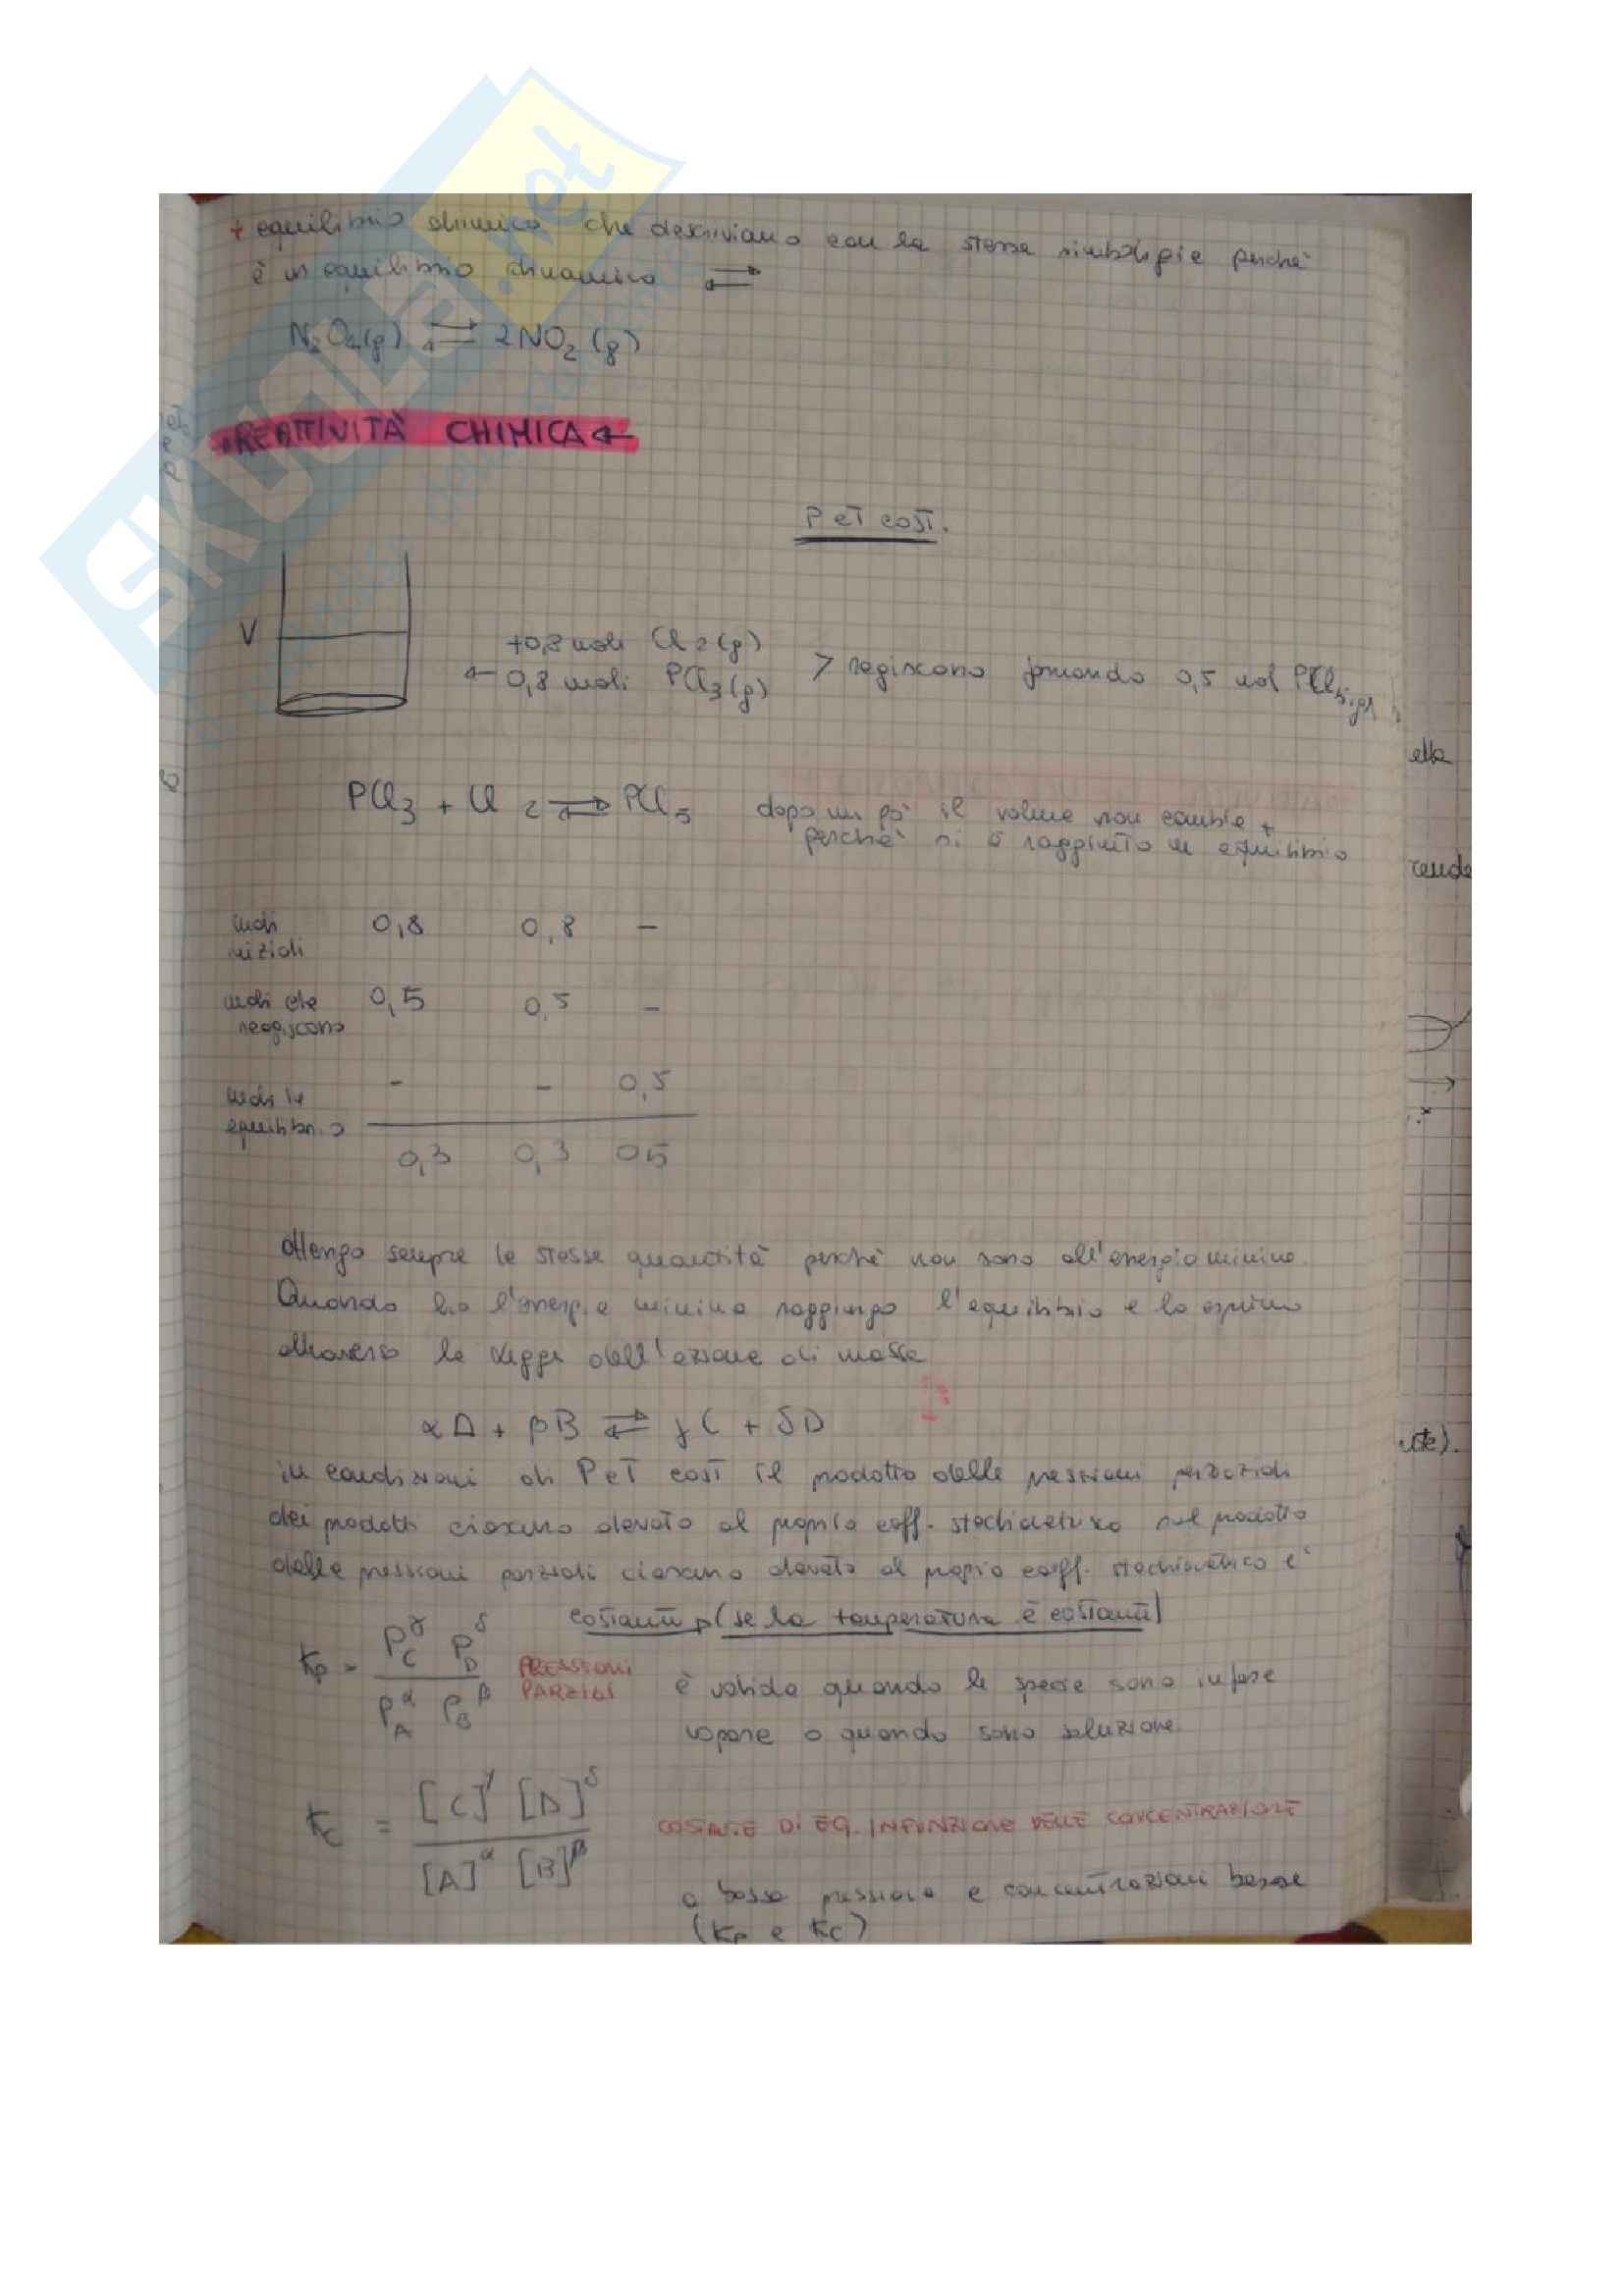 + equilibrio chimico che descriviamo con la stessa simbologia perché
è un equilibrio dinamico ⇌
N2O4(g) ⇌ 2NO2 (g)
REATTIVITÀ CHIMICA
P e T cost.
V
+0,8 moli Cl2(g)
0,8 moli PCl3(g) > reagiscono formando 0,5 mol PCl5(g)
PCl3 + Cl2 ⇌ PCl5 dopo un po' il volume non cambia +
perché si è raggiunto un equilibrio
moli iniziali 0,8 0,8 –
moli che reagiscono 0,5 0,5 –
moli
equilibrio
– – 0,5
0,3 0,3 05
ottengo sempre le stesse quantità perché non sono all'energia minima.
Quando ho l'energia minima raggiungo l'equilibrio e lo esprimo
attraverso la legge dell'azione di massa
αA + βB ⇌ γC + δD
in condizioni di P e T cost il prodotto delle pressioni parziali
dei prodotti ciascuno elevato al proprio coeff. stechiometrico sul prodotto
delle pressioni parziali ciascuno elevato al proprio coeff. stechiometrico è
costante (se la temperatura è costante)
Kp = PC^γ PD^δ / PA^α PB^β PRESSIONI PARZIALI
è valida quando le specie sono in fase
vapore o quando sono soluzione.
Kc = [C]^γ [D]^δ / [A]^α [B]^β
COSTANTE DI EQ. IN FUNZIONE DELLE CONCENTRAZIONI
a bassa pressione e concentrazioni basse
(Kp e Kc)
ella
SKUOLA.net